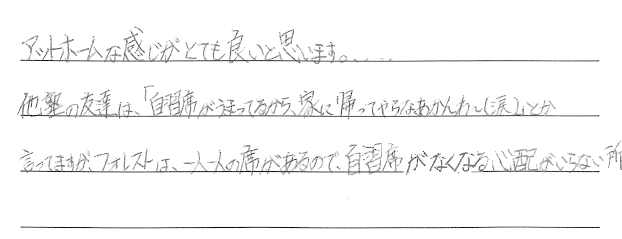 アットホームな感じがとても良いと思います。....
他塾の友達は、「自習席がうまってるから、家に帰ってやらなあかんわ〜(涙)」とか
言ってますが、フォレストは、一人一人の席があるので、自習席がなくなる心配がいらない所